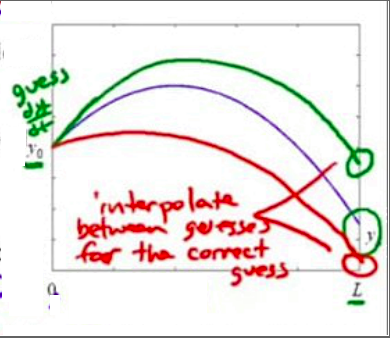 guess
dy
dt
y₀
interpolate
between guesses
for the correct
guess
y
0
L